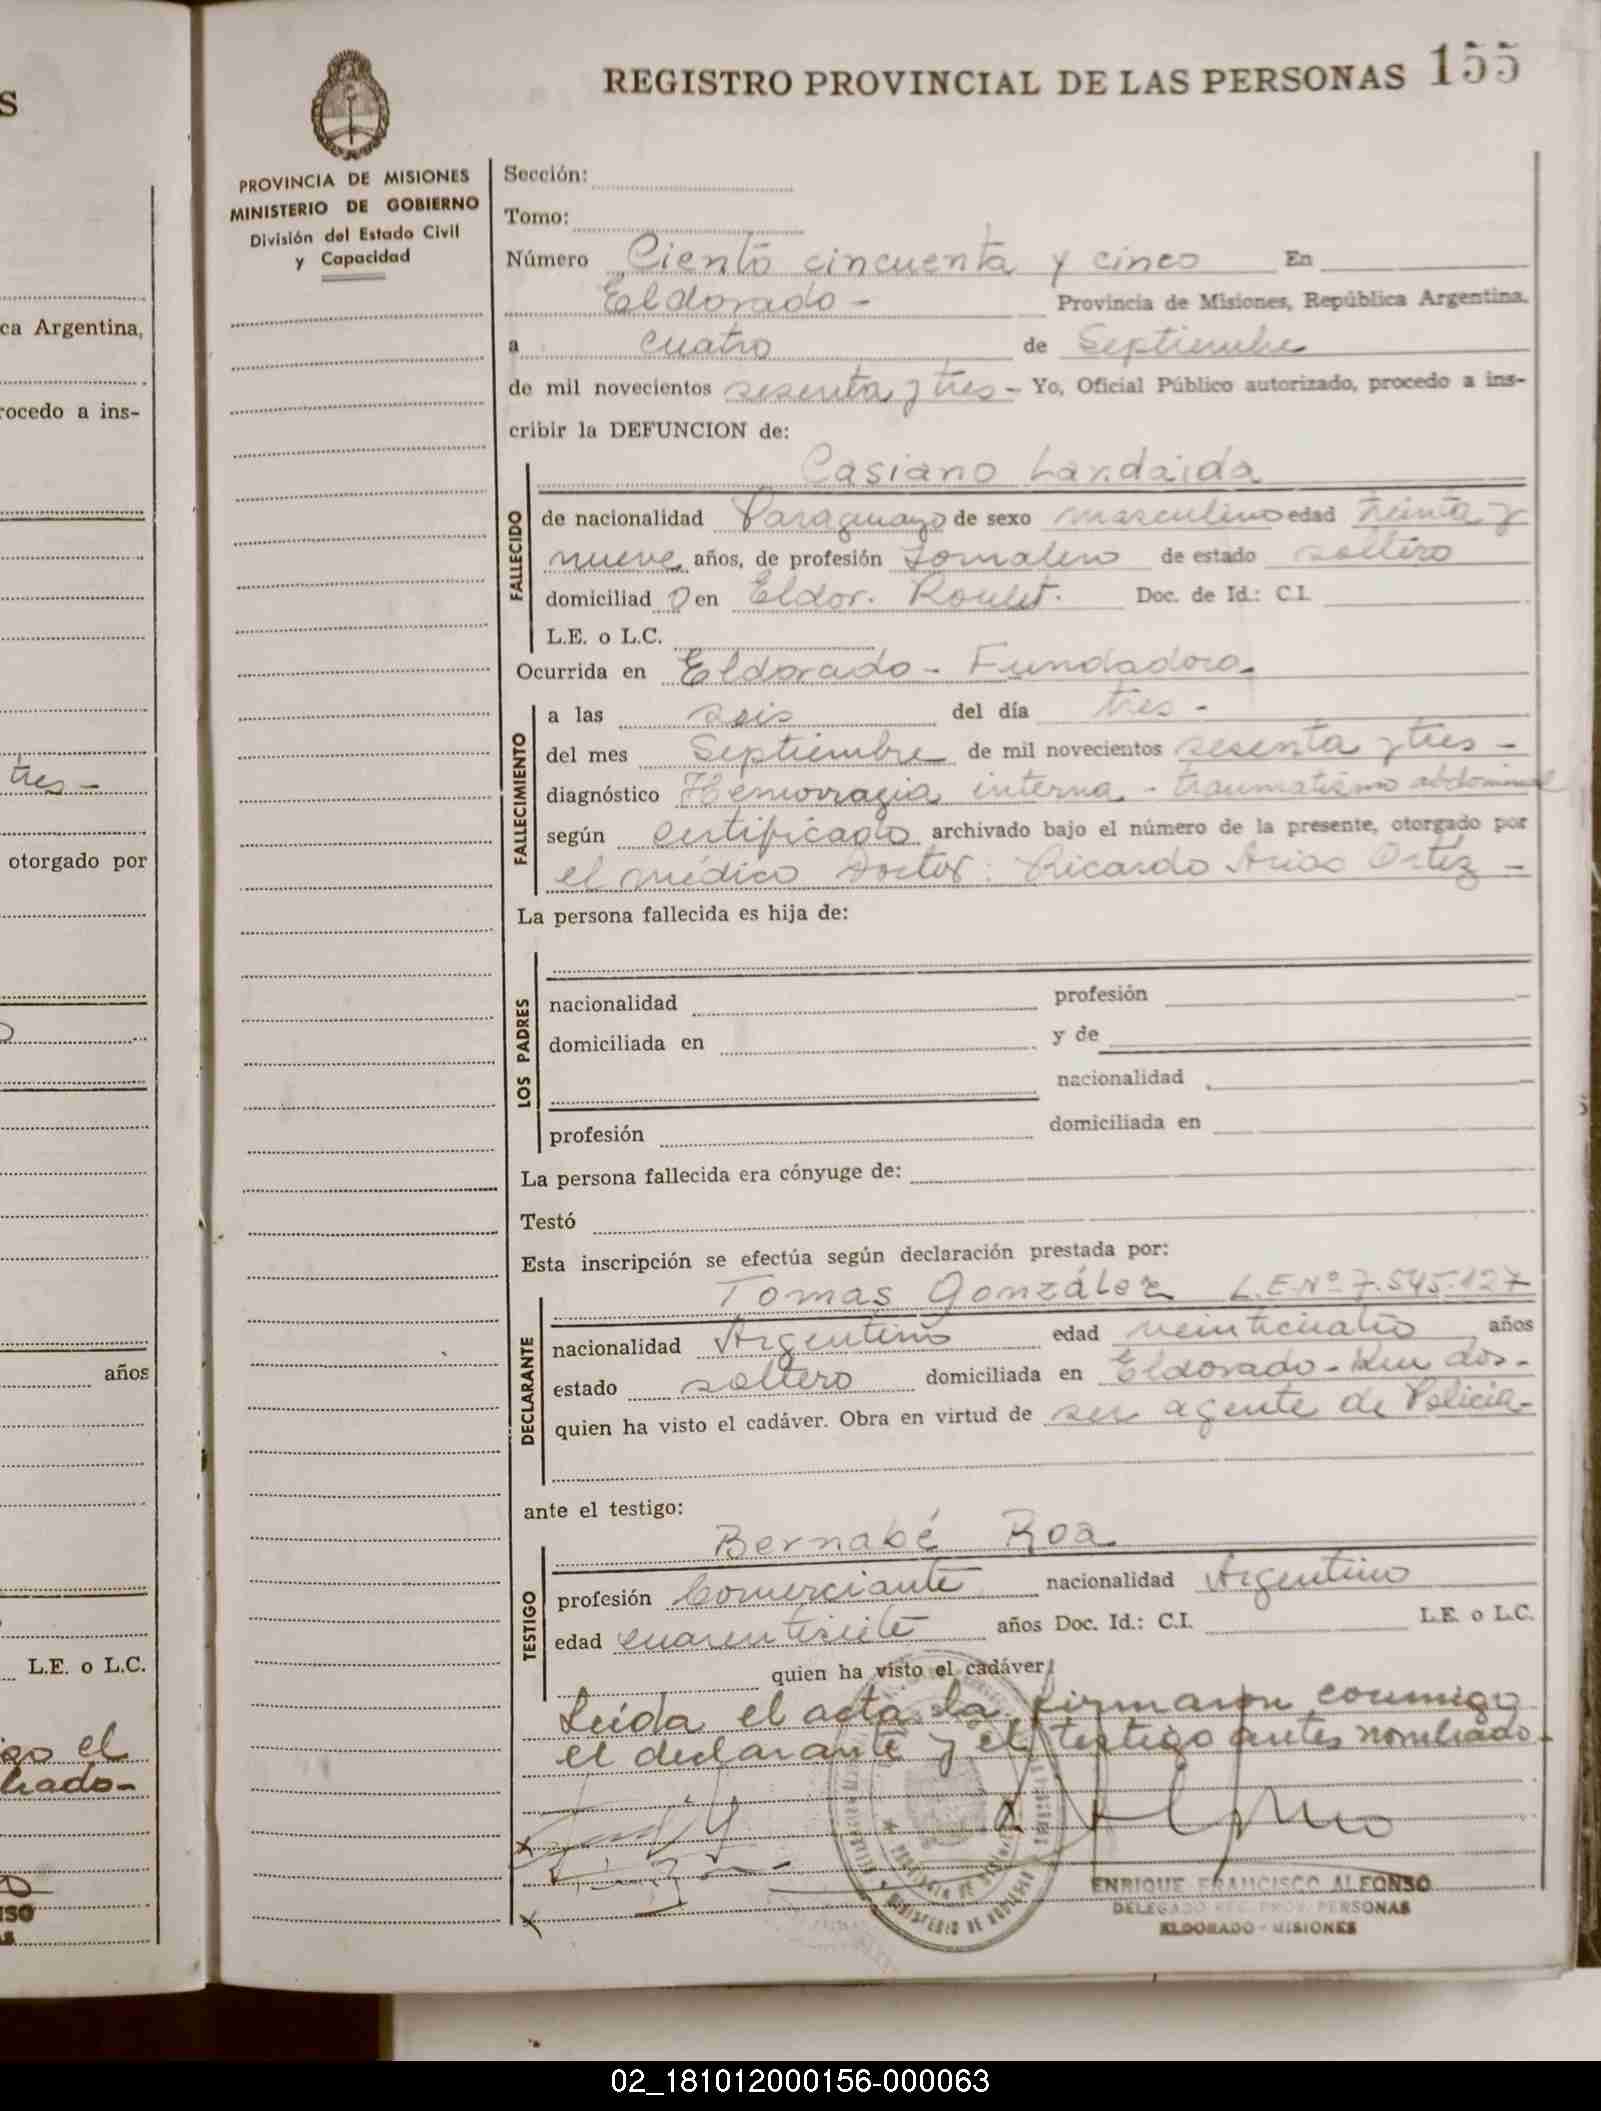 S
ca Argentina,
rocedo a ins-
tres -
otorgado por
años
L.E. o L.C.
el
REGISTRO PROVINCIAL DE LAS PERSONAS 155
PROVINCIA DE MISIONES
MINISTERIO DE GOBIERNO
División del Estado Civil
y Capacidad
Sección:
Tomo:
Número Ciento cincuenta y cinco En
Eldorado - Provincia de Misiones, República Argentina,
a cuatro de Septiembre
de mil novecientos sesenta y tres - Yo, Oficial Público autorizado, procedo a ins-
cribir la DEFUNCION de:
Casiano Landaida
FALLECIDO
de nacionalidad Paraguayo de sexo masculino edad treinta y
nueve años, de profesión Jornalero de estado soltero
domiciliad o en Eldor. Roulet. Doc. de Id.: C.I.
L.E. o L.C.
Ocurrida en Eldorado - Fundadora -
FALLECIMIENTO
a las seis del día tres -
del mes Septiembre de mil novecientos sesenta y tres -
diagnóstico Hemorragia interna - traumatismo abdominal
según certificado archivado bajo el número de la presente, otorgado por
el médico Doctor: Ricardo Arias Ortíz -
La persona fallecida es hija de:
LOS PADRES
nacionalidad profesión
domiciliada en y de
nacionalidad
profesión domiciliada en
La persona fallecida era cónyuge de:
Testó
Esta inscripción se efectúa según declaración prestada por:
Tomas González L.E.Nº 7.545.127
DECLARANTE
nacionalidad Argentino edad veinticuatro años
estado soltero domiciliada en Eldorado - Km dos -
quien ha visto el cadáver. Obra en virtud de ser agente de Policia -
ante el testigo:
Bernabé Roa
TESTIGO
profesión Comerciante nacionalidad Argentino
edad cuarentisiete años Doc. Id.: C.I. L.E. o L.C.
quien ha visto el cadáver
Leída el acta la firmaron conmigo
el declarante y el testigo antes nombrado -
ENRIQUE FRANCISCO ALFONSO
DELEGADO REG. PROV. PERSONAS
ELDORADO - MISIONES
02_181012000156-000063